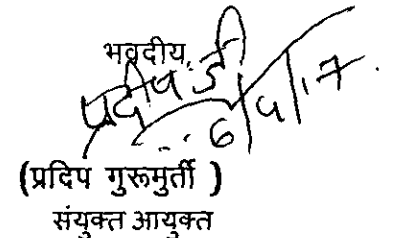 भवदीय,
प्रदीप जी
6/9/17.
(प्रदिप गुरूमुर्ती )
संयुक्त आयुक्त